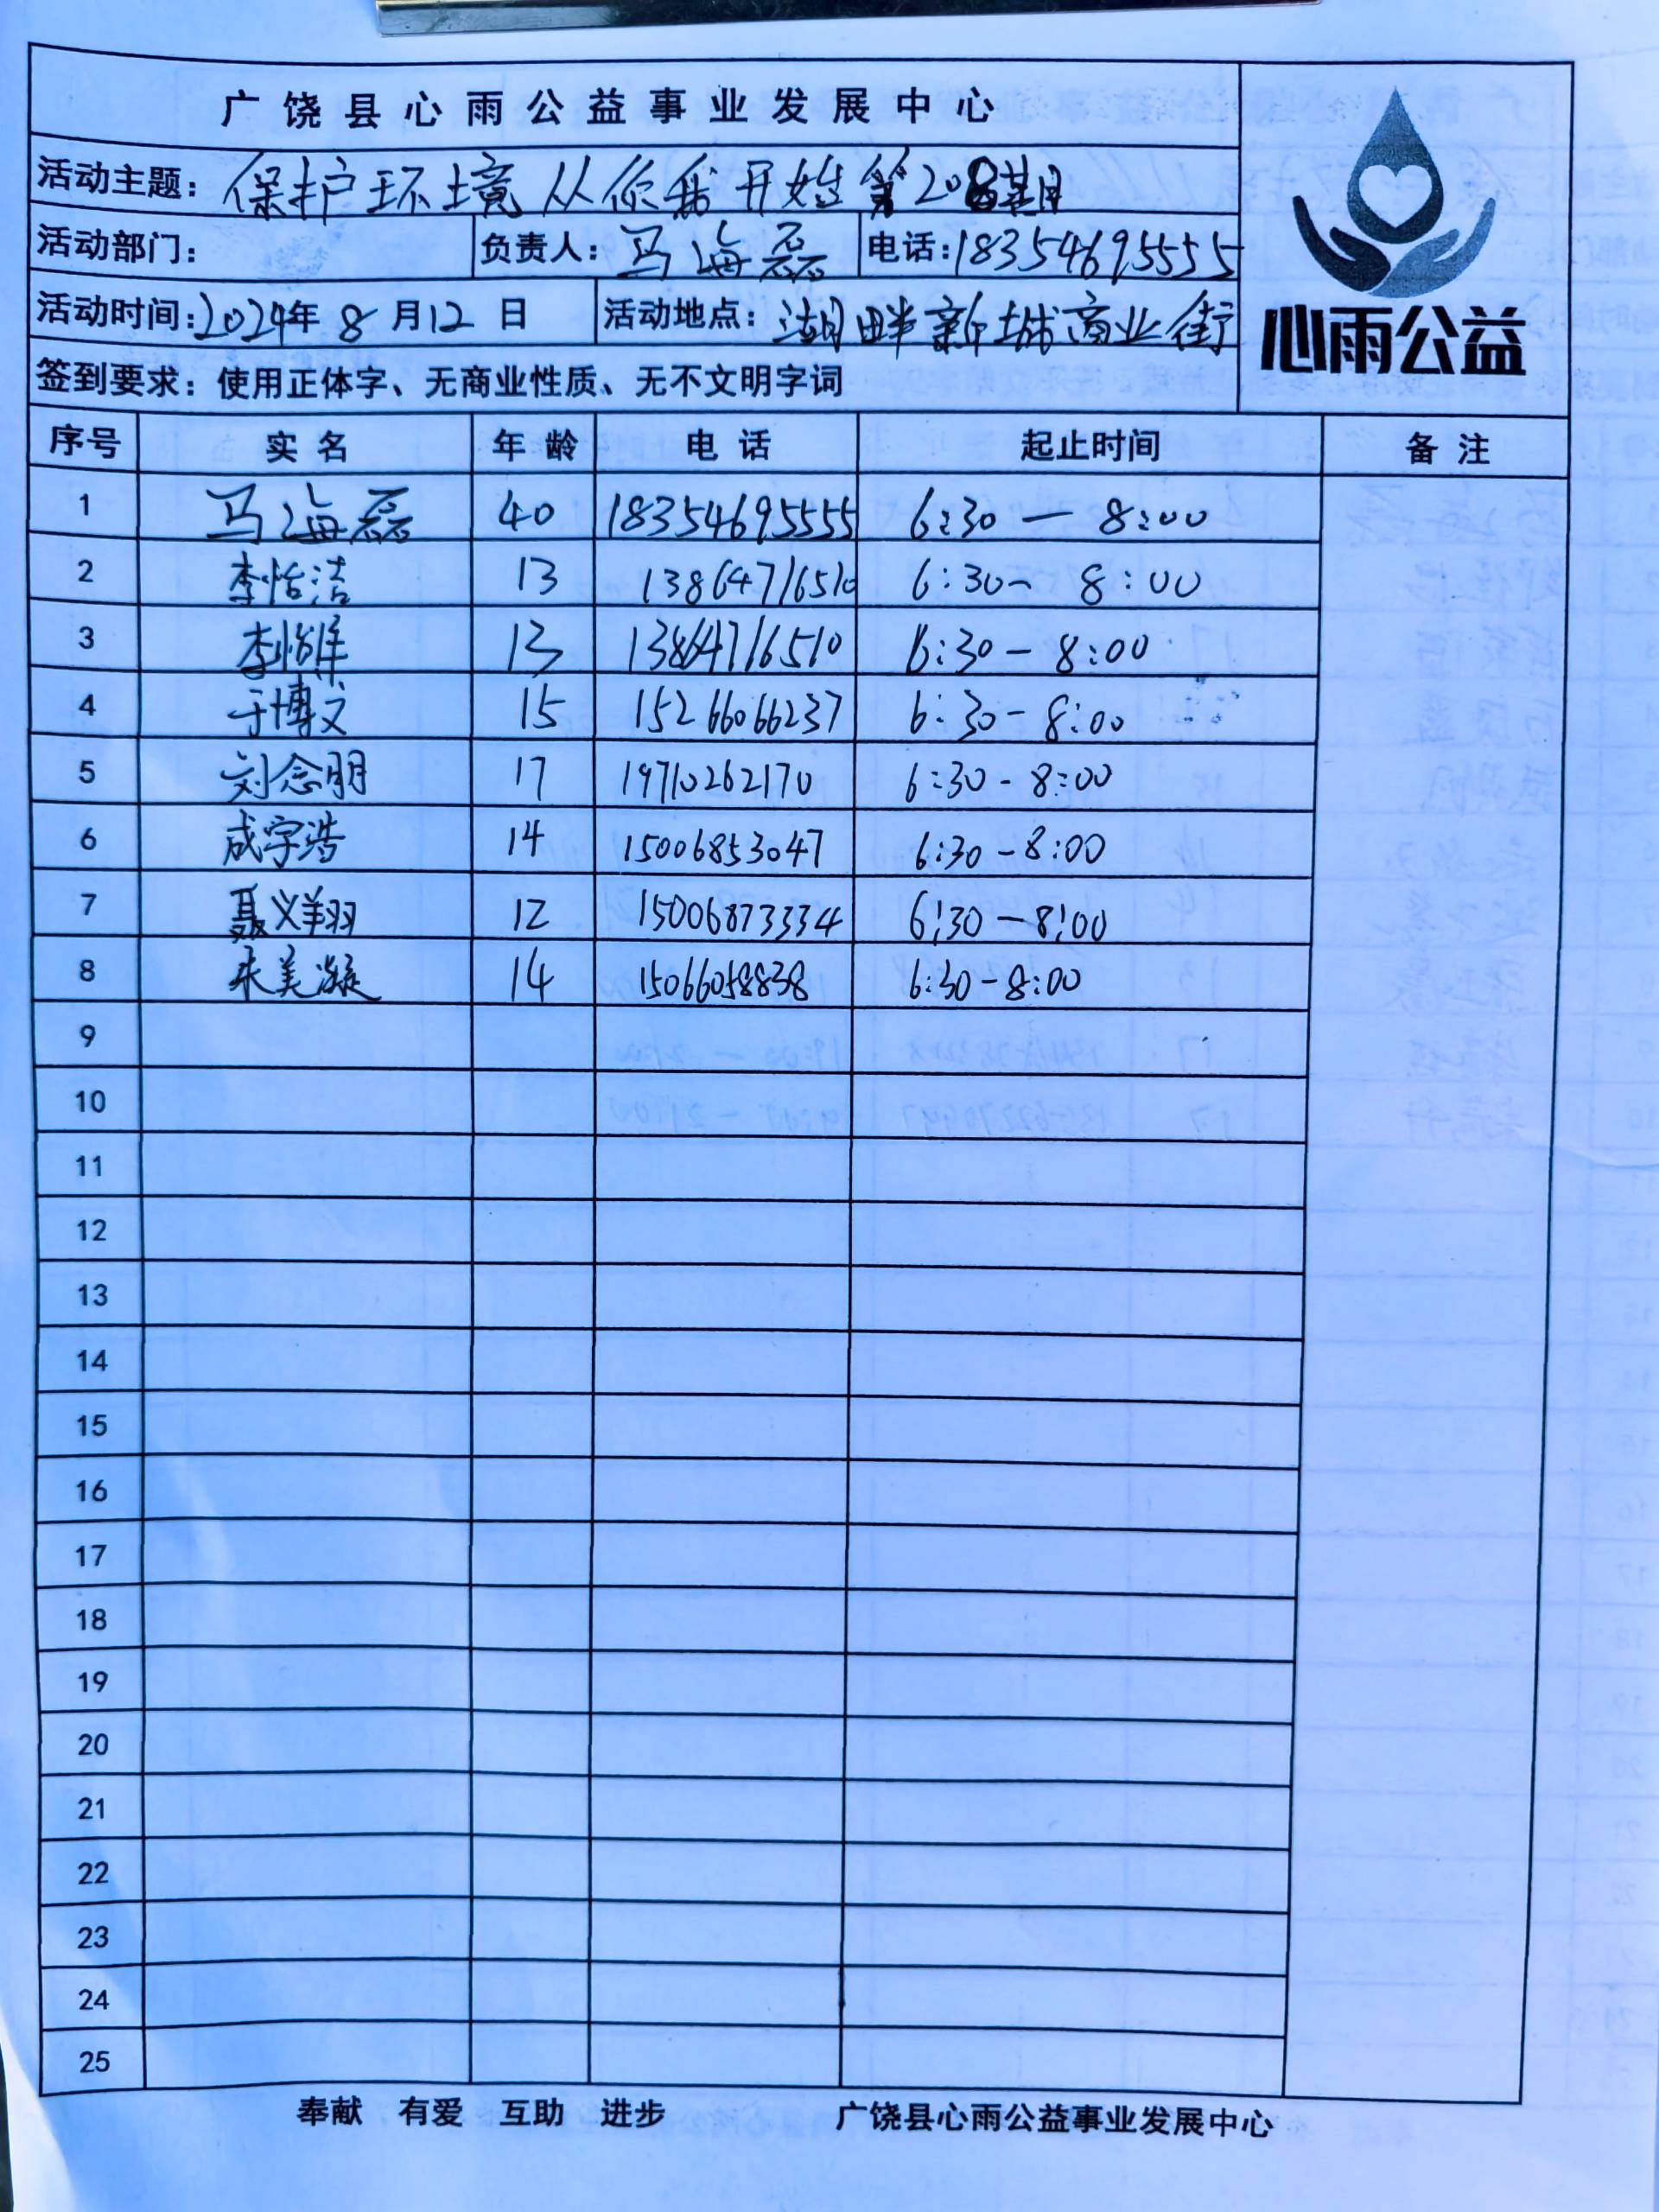 广饶县心雨公益事业发展中心
活动主题：保护环境从你我开始第208期
活动部门： 负责人：马海磊 电话：18354695555
活动时间：2024年8月12日 活动地点：湖畔新城商业街
心雨公益
签到要求：使用正体字、无商业性质、无不文明字词
序号 实名 年龄 电话 起止时间 备注
1 马海磊 40 18354695555 6:30—8:00
2 李怡洁 13 13864716510 6:30—8:00
3 李怡 13 13864716510 6:30—8:00
4 于博文 15 15266066237 6:30—8:00
5 刘念明 17 19710262170 6:30-8:00
6 成宇浩 14 15006853047 6:30-8:00
7 聂义翔 12 15006873334 6:30—8:00
8 美凝 14 15066058838 6:30-8:00
9
10
11
12
13
14
15
16
17
18
19
20
21
22
23
24
25
奉献 有爱 互助 进步 广饶县心雨公益事业发展中心